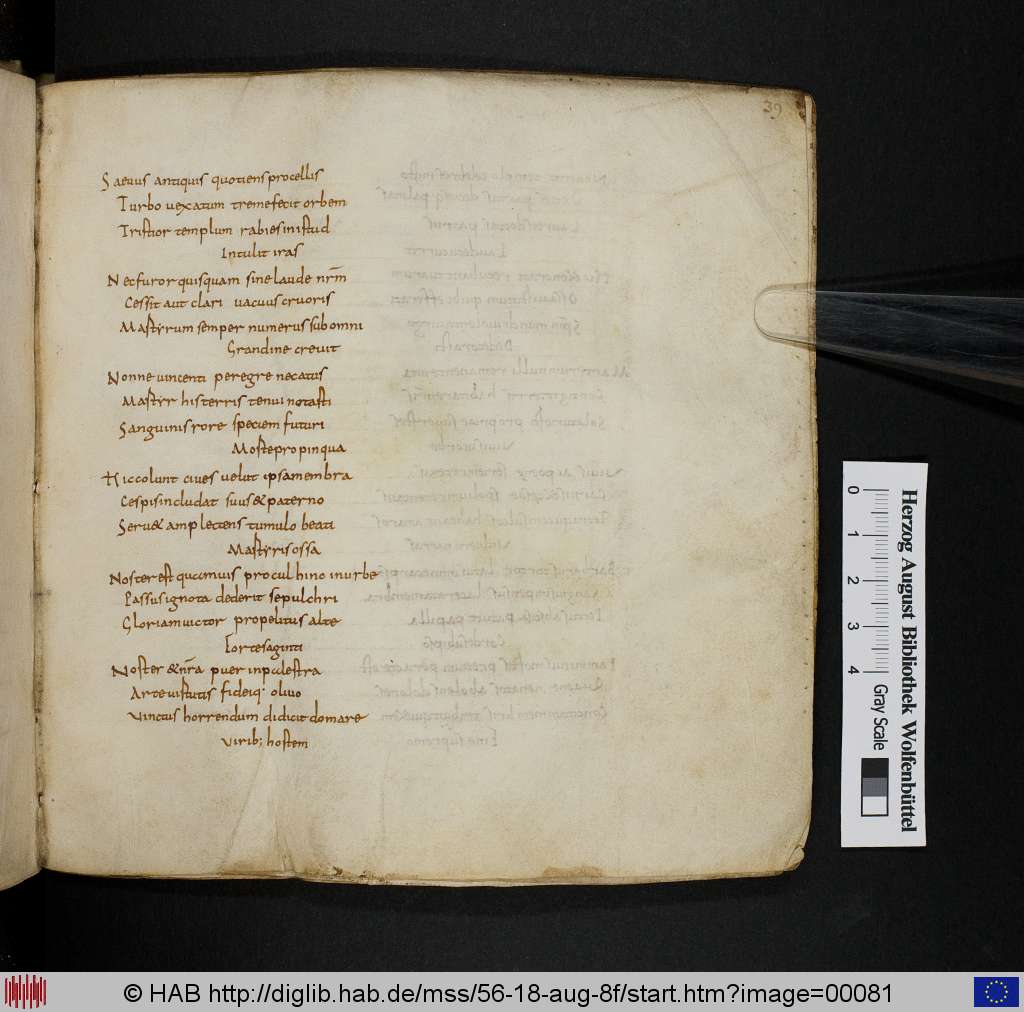 39
Saeuus antiquis quotiens procellis
Turbo uexatum tremefecit orbem
Tristior templum rabies in istud
Intulit iras
Nec furor quisquam sine laude nrm̄
Cessit aut clari uacuus cruoris
Martyrum semper numerus sub omni
Grandine creuit
Nonne uincenti peregre necatus
Martyr his terris tenui notasti
Sanguinis rore speciem futuri
Morte propinqua
Hic colunt ciues uelut ipsa membra
Cespis includat suus & paterno
Seru& amplectens tumulo beati
Martyris ossa
Noster est quamuis procul hinc in urbe
Passus ignota dederit sepulchri
Gloriam uictor prope litus alte
Forte sagynti
Noster & nrā puer in palestra
Arte uirtutis fideiq· oliuo
Vnctus horrendum didicit domare
Virib; hostem
0 1 2 3 4
Herzog August Bibliothek Wolfenbüttel
Gray Scale
© HAB http://diglib.hab.de/mss/56-18-aug-8f/start.htm?image=00081